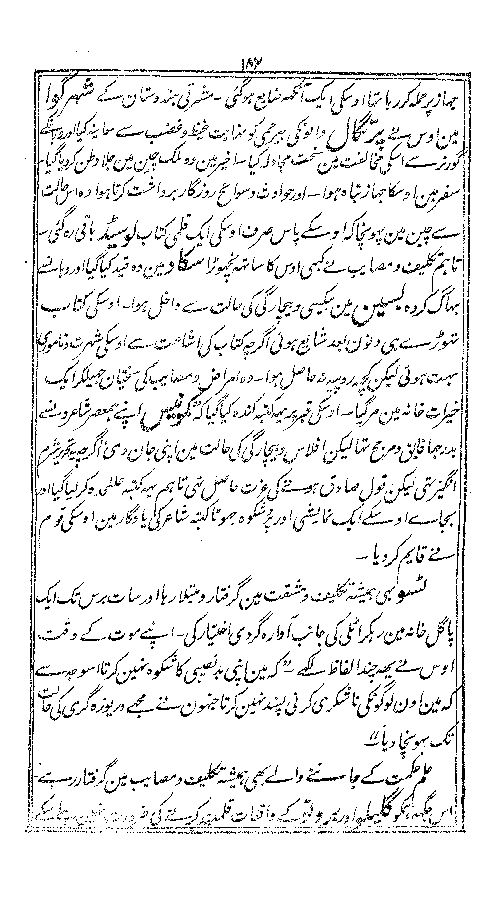 ۱۸۷
جہاز پر حملہ کر رہا تھا اوسکی ایک آنکھ ضایع ہوگئی ۔ مشرقی ہندوستان کے شہر گوا
مین اوس نے پرتگال والونکی بیرحمی کو نہایت غیظ و غضب سے معاینہ کیا اور
گورنر سے اسکی مخالفت مین سخت مجادلہ کیا ۔ اخیر مین وہ ملک چین مین جلا وطن کر دیا گیا ۔
سفر مین اوسکا جہاز تباہ ہوا ۔ اور حوادث و سوانح روزگار برداشت کرتا ہوا وہ اس حالت
سے چین مین پہونچا کہ اوسکے پاس صرف اوسکی ایک قلمی کتاب لوسیڈر باقی رہ گئی ۔
تاہم تکلیف و مصایب نے کبھی اوس کا ساتھ نچھوڑا مکاؤ مین وہ قید کیا گیا اور وہانسے
بھاگ کر وہ لسبن مین بیکسی و بیچارگی کی حالت سے داخل ہوا ۔ اوسکی کتاب
تھوڑے ہی دنون بعد شایع ہوئی اگرچہ کتاب کی اشاعت سے اوسکی شہرت و ناموری
بہت ہوئی لیکن کچھ روپیہ نہ حاصل ہوا ۔ وہ امراض و مصائب کی سختیان جھیلکر ایک
خیرات خانہ مین مر گیا ۔ اوسکی قبر پر یہ کتبہ کندہ کیا گیا کہ کموئنس اپنے ہمعصر شاعرونسے
بدرجہا فایق و مرجح تھا لیکن افلاس و بیچارگی کی حالت مین اپنی جان دی اگرچہ یہ تحریر شرم
انگیز تھی لیکن قول صادق ہونے کی عزت حاصل تھی تاہم یہ کتبہ علحدہ کر لیا گیا اور
بجاے اوسکے ایک نمایشی اور پرشکوہ جھوٹا کتبہ شاعر کی یادگار مین اوسکی قوم
نے قایم کر دیا ۔
ٹسو بھی ہمیشہ تکلیف و مشقت مین گرفتار و مبتلا رہا اور سات برس تک ایک
پاگل خانہ مین رہکر اٹلی کی جانب آوارہ گردی اختیار کی ۔ اپنے موت کے وقت
اوس نے یہہ چند الفاظ لکھے " کہ مین اپنی بدنصیبی کا شکوہ نہین کرتا اسوجہ سے
کہ مین اون لوگونکی ناشکری کرنی پسند نہین کرتا جنہون نے مجھے دریوزہ گری کی حالت
تک پہونچا دیا "
علم حکمت کے جاننے والے بھی ہمیشہ تکلیف و مصایب مین گرفتار رہے
اس جگہہ ہمکو گلیلیو اور کے واقعات قلمبند کرنے کی ضرورت نہین